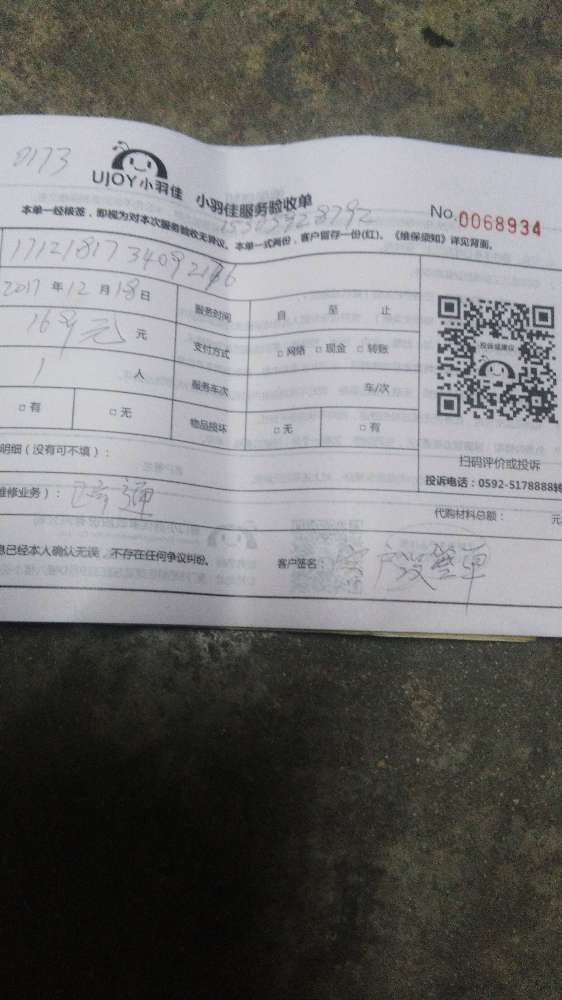 0173
UJOY小羽佳 小羽佳服务验收单
No.0068934
本单一经核签，即视为对本次服务验收无异议。本单一式两份，客户留存一份(红)。《维保须知》详见背面。
2017年12月18日 服务时间 自 至 止
168元 元 支付方式 □网络 □现金 □转账
1 人 服务车次 车/次
□有 □无 物品损坏 □无 □有
投诉或建议
扫码评价或投诉
投诉电话：0592-5178888转
明细（没有可不填）：
维修业务）：
代购材料总额： 元
息已经本人确认无误，不存在任何争议纠纷。 客户签名：客户没签单